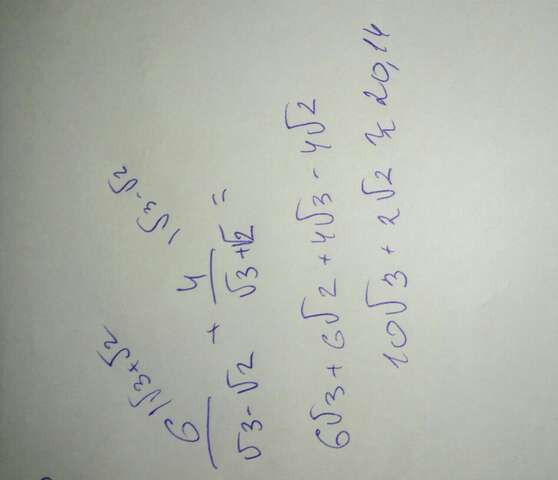 6 \√3+√2 4 \√3-√2
6/(√3-√2) + 4/(√3+√2) =
6√3 + 6√2 + 4√3 - 4√2
10√3 + 2√2 ≈ 20,14